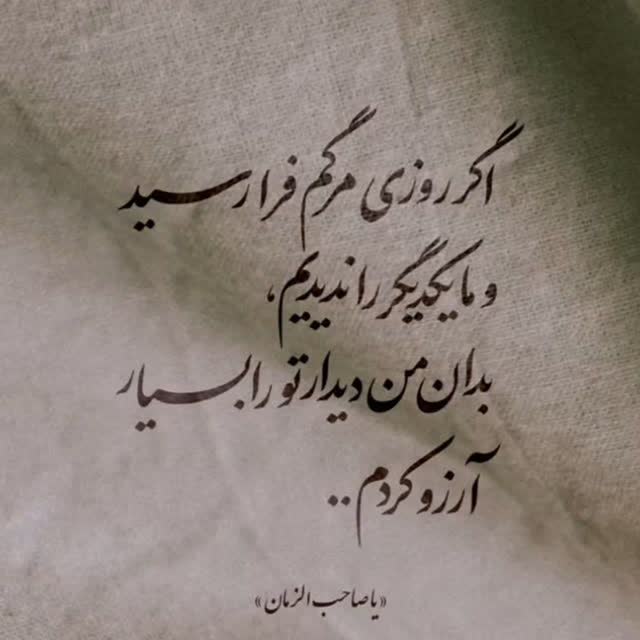 اگر روزی مرگم فرا رسید
و ما یکدیگر را ندیدیم،
بدان من دیدار تو را بسیار
آرزو کردم..
«یا صاحب الزمان»